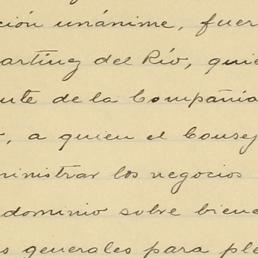 ción unánime, fuer
artínez del Río, quie
nte de la Compañía
, a quien el Consej
ministrar los negocios
dominio sobre biene
s generales para ple